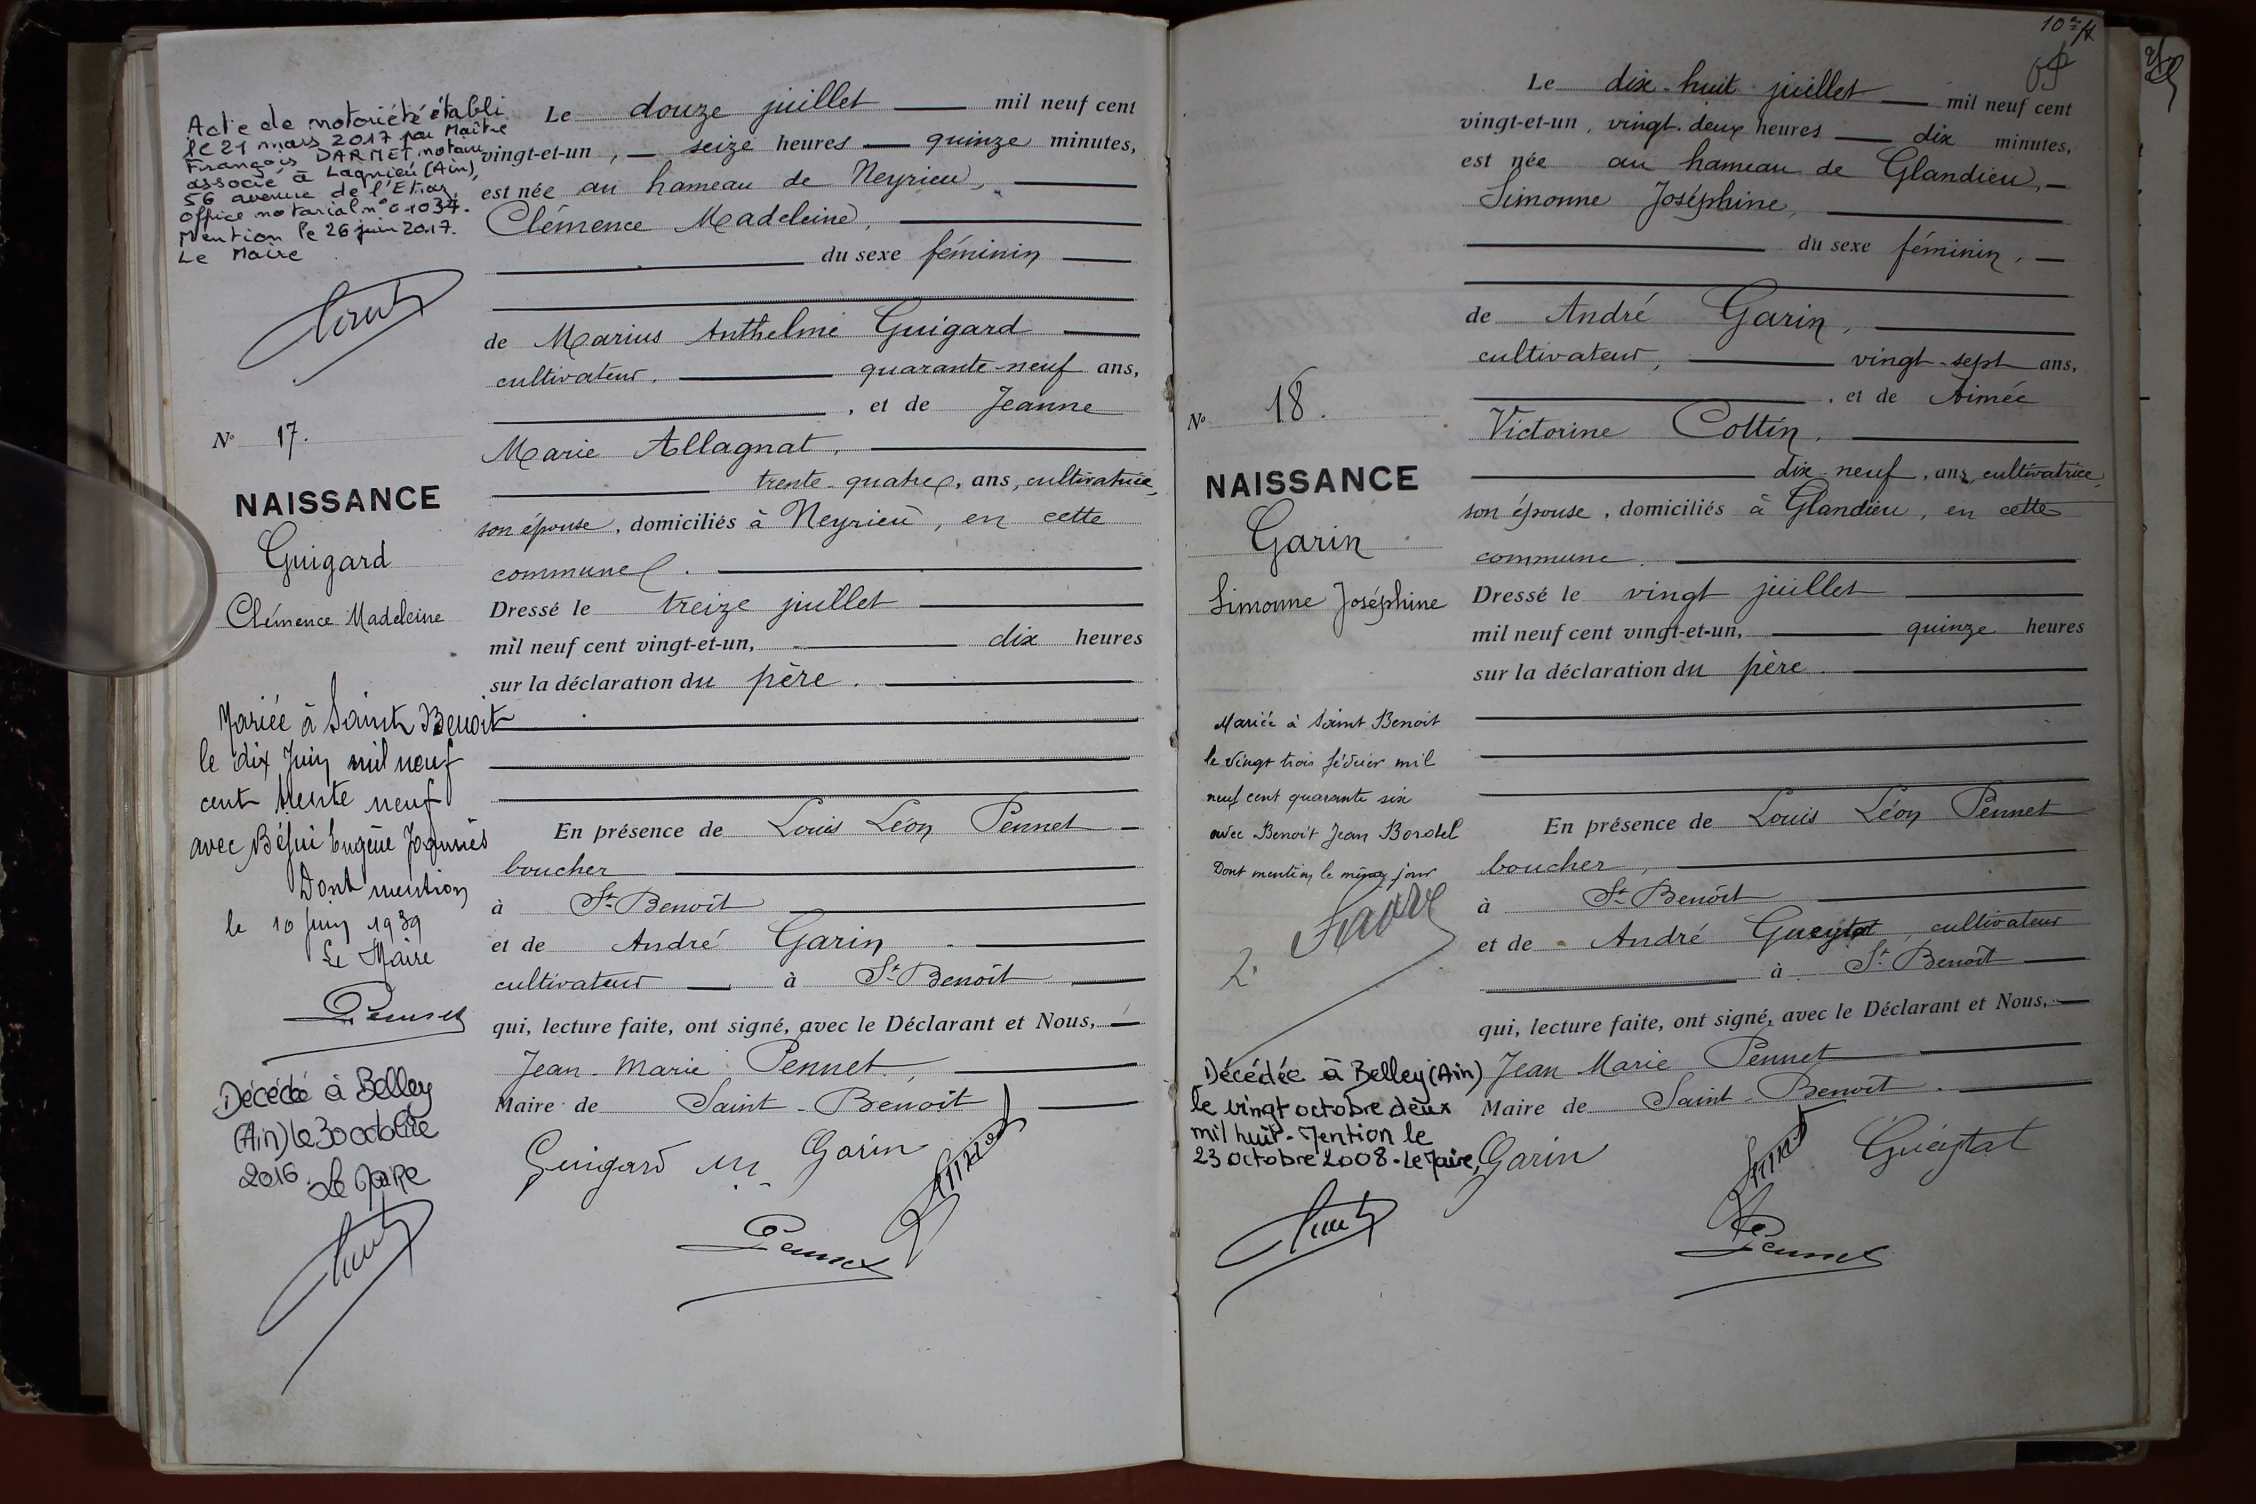 Acte de notoriété établi
le 21 mars 2017 par Maître
François DARMET, notaire
associé à Lagnieu (Ain),
56 avenue de l'Etraz,
office notarial n° 01034.
Mention le 26 juin 2017.
Le Maire
N° 17.
NAISSANCE
Guigard
Clémence Madeleine
Mariée à Saint Benoit
le dix Juin mil neuf
cent trente neuf
avec Béjui Eugène Joannès
Dont mention
le 10 Juin 1939
Le Maire
Pennet
Décédée à Belley
(Ain) le 30 octobre
2016. Le Maire
Le douze juillet mil neuf cent
vingt-et-un, seize heures quinze minutes,
est née au hameau de Neyrieu,
Clémence Madeleine,
du sexe féminin
de Marius Anthelme Guigard
cultivateur, quarante-neuf ans,
, et de Jeanne
Marie Allagnat,
trente-quatre, ans, cultivatrice,
son épouse, domiciliés à Neyrieu, en cette
commune.
Dressé le treize juillet
mil neuf cent vingt-et-un, dix heures
sur la déclaration du père.
En présence de Louis Léon Pennet
boucher
à St Benoît
et de André Garin
cultivateur à St Benoît
qui, lecture faite, ont signé, avec le Déclarant et Nous,
Jean-Marie Pennet,
Maire de Saint-Benoît
Guigard Garin
Pennet
Pennet
10 
Le dix-huit juillet mil neuf cent
vingt-et-un, vingt-deux heures dix minutes,
est née au hameau de Glandieu,
Simonne Joséphine,
du sexe féminin,
de André Garin,
cultivateur, vingt-sept ans,
, et de Aimée
Victorine Cottin,
dix-neuf, ans, cultivatrice,
son épouse, domiciliés à Glandieu, en cette
commune.
Dressé le vingt juillet
mil neuf cent vingt-et-un, quinze heures
sur la déclaration du père.
En présence de Louis Léon Pennet
boucher,
à St Benoît
et de André Gueytat, cultivateur
à St Benoît
qui, lecture faite, ont signé, avec le Déclarant et Nous,
Jean Marie Pennet
Maire de Saint-Benoît.
Garin Pennet Gueytat
Pennet
N° 18.
NAISSANCE
Garin
Simonne Joséphine
Mariée à Saint Benoit
le vingt trois février mil
neuf cent quarante six
avec Benoit Jean Borotel
Dont mention le même jour
2.
Décédée à Belley (Ain)
le vingt octobre deux
mil huit - Mention le
23 octobre 2008. Le Maire,